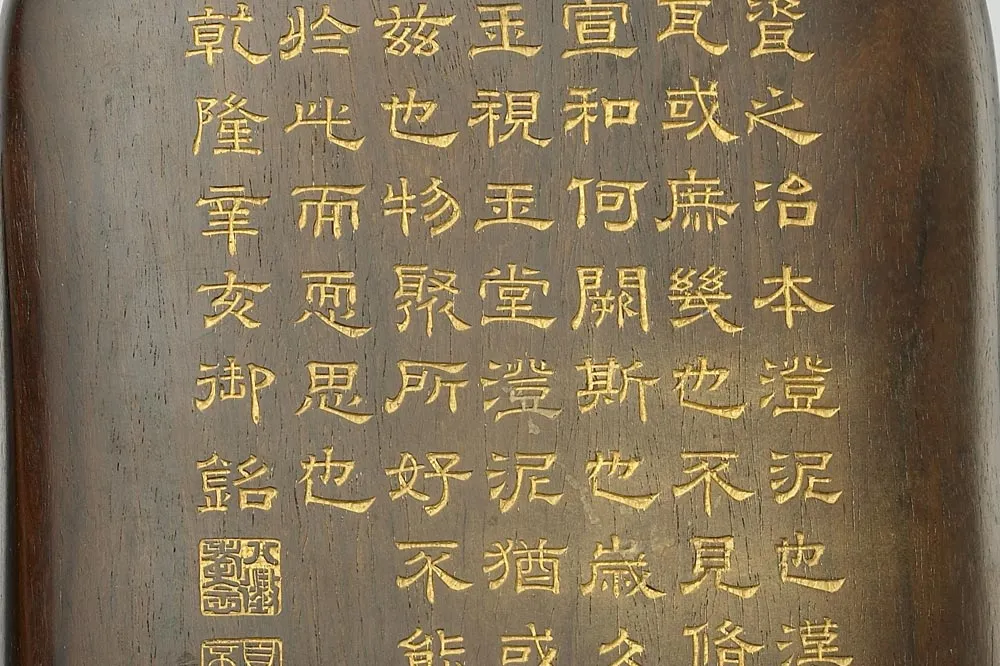 瓷之治本澄泥也漢
瓦或庶幾也不見
宣和何闕斯也歲久
玉視玉堂澄泥猶或
茲也物聚所好不能
於此而恧思也
乾隆辛亥御銘